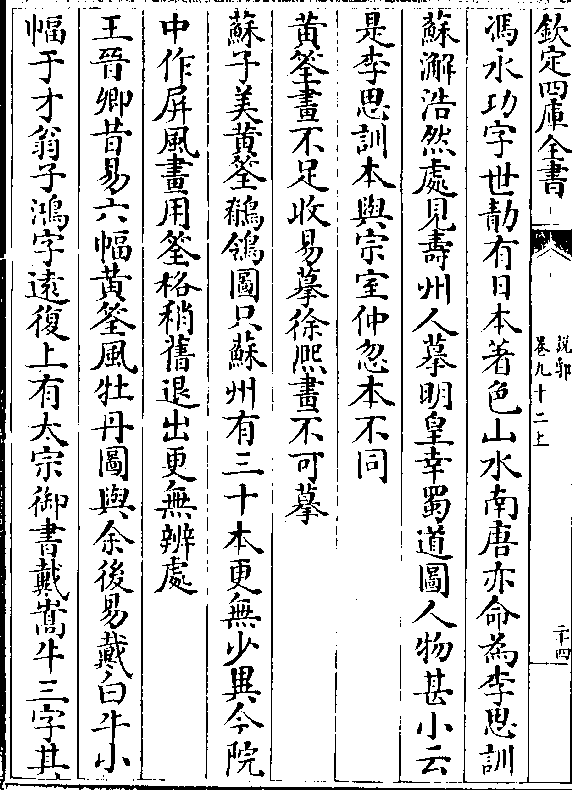 欽定四庫全書
說郛
卷九十二上
二十四
馮永功字世勣有日本著色山水南唐亦命為李思訓
蘇澥浩然處見壽州人摹明皇幸蜀道圖人物甚小云
是李思訓本與宗室仲忽本不同
黄筌畫不足收易摹徐熙畫不可摹
蘇子美黄筌鶺鴒圖只蘇州有三十本更無少異今院
中作屏風畫用筌格稍舊退出更無辨處
王晉卿昔易六幅黄筌風牡丹圖與余後易戴白牛小
幅于才翁子鴻字遠復上有太宗御書戴嵩牛三字其